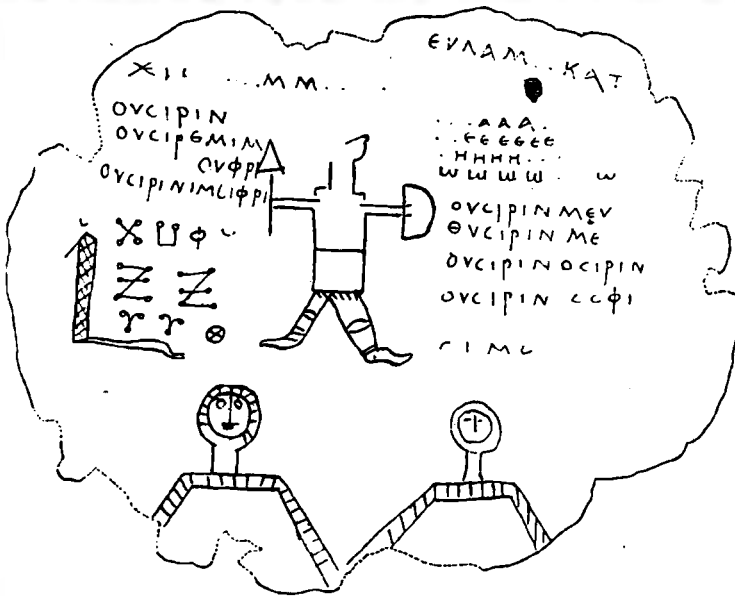 ΕΥΛΑΜ..ΚΑΤ
...ΜΜ....
ΟΥCΙΡΙΝ
ΟΥCΙΡЄΜΙΜ
ΟΥΦΡΙ
ΟΥCΙΡΙΝΙΜ
...ΑΑΑ.
..ΕΕΕΕΕΕ
.ΗΗΗΗ...
ωωωω. ω
ΟΥCΙΡΙΝΜΕΥ
ΘΥCΙΡΙΝΜΕ
ΟΥCΙΡΙΝΟCΙΡΙΝ
ΟΥCΙΡΙΝ